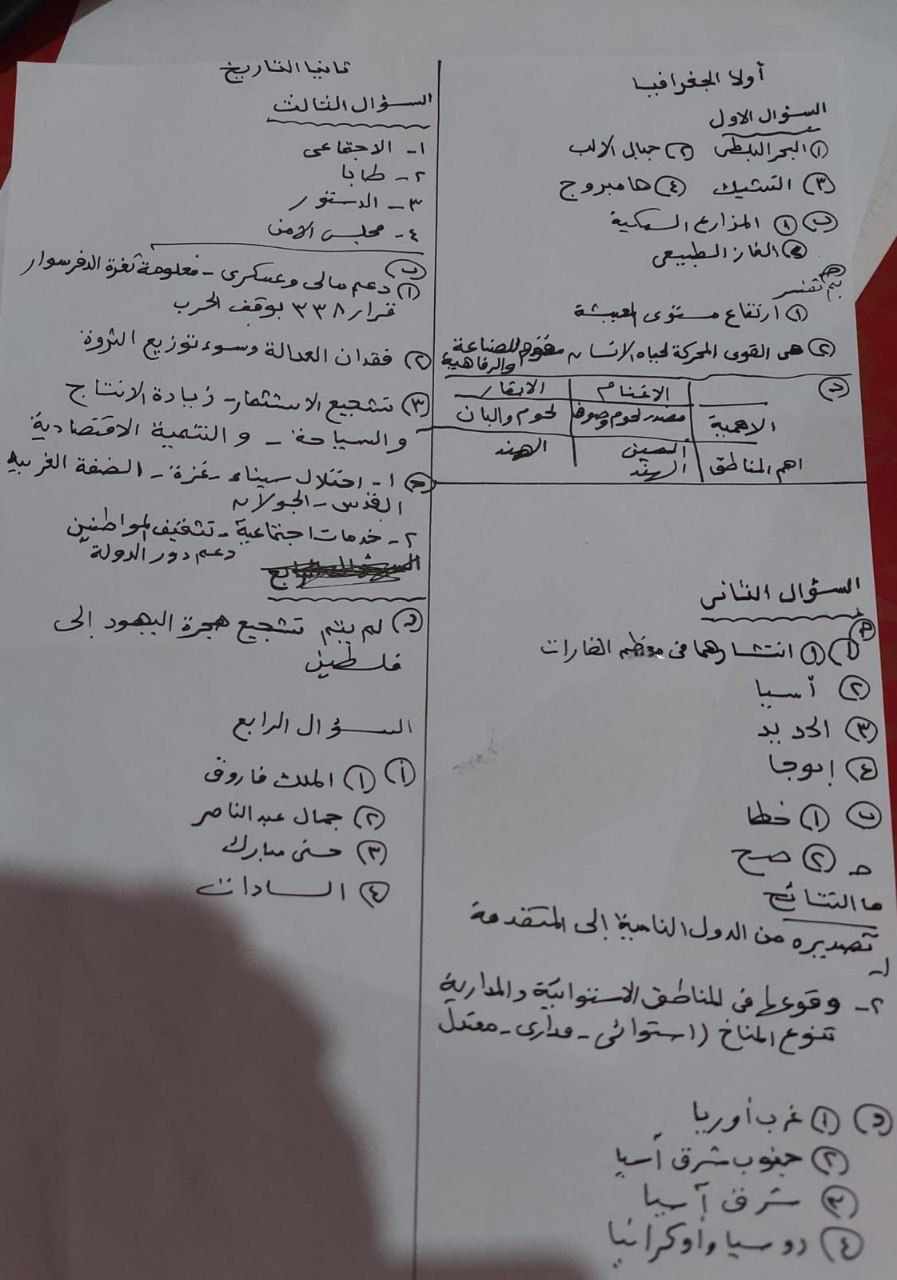 أولا الجغرافيا
السؤال الاول
① البحر البلطى ② جبال الالب
③ التشيك ④ هامبروج
ب ① المزارع السمكية
② الغاز الطبيعى
بم تفسر
① ارتفاع مستوى المعيشة
② هى القوى المحركة لحياه الانسان للصناعة
والرفاهية
د الاغنام الابقار
الاهمية مصدر لحوم وصوف لحوم والبان
اهم المناطق الصين الهند
الهند
السؤال الثانى
① انتشارهما فى معظم القارات
② أسيا
③ الحديد
④ إبوجا
ب ① خطا
② صح
ما النتائج
١- تصديره من الدول النامية إلى المتقدمة
٢- وقوعها فى المناطق الاستوائية والمدارية
تنوع المناخ (استوائى - مدارى - معتدل
د ① غرب أوربا
② جنوب شرق أسيا
③ شرق أسيا
④ روسيا وأوكرانيا
ثانيا التاريخ
السؤال الثالث
١- الاجتماعى
٢- طابا
٣- الدستور
٤- مجلس الامن
ب
① دعم مالى وعسكرى - معلومة ثغرة الدفرسوار
قرار ٣٣٨ بوقف الحرب
② فقدان العدالة وسوء توزيع الثروة
③ تشجيع الاستثمار - زيادة الانتاج
والسياحة - والتنمية الاقتصادية
ج ١- احتلال سيناء - غزة - الضفة الغربيه
القدس - الجولان
٢- خدمات اجتماعية - تثقيف المواطنين
دعم دور الدولة
د لم يتم تشجيع هجرة اليهود إلى
فلسطين
السؤال الرابع
أ ① الملك فاروق
② جمال عبد الناصر
③ حسنى مبارك
④ السادات